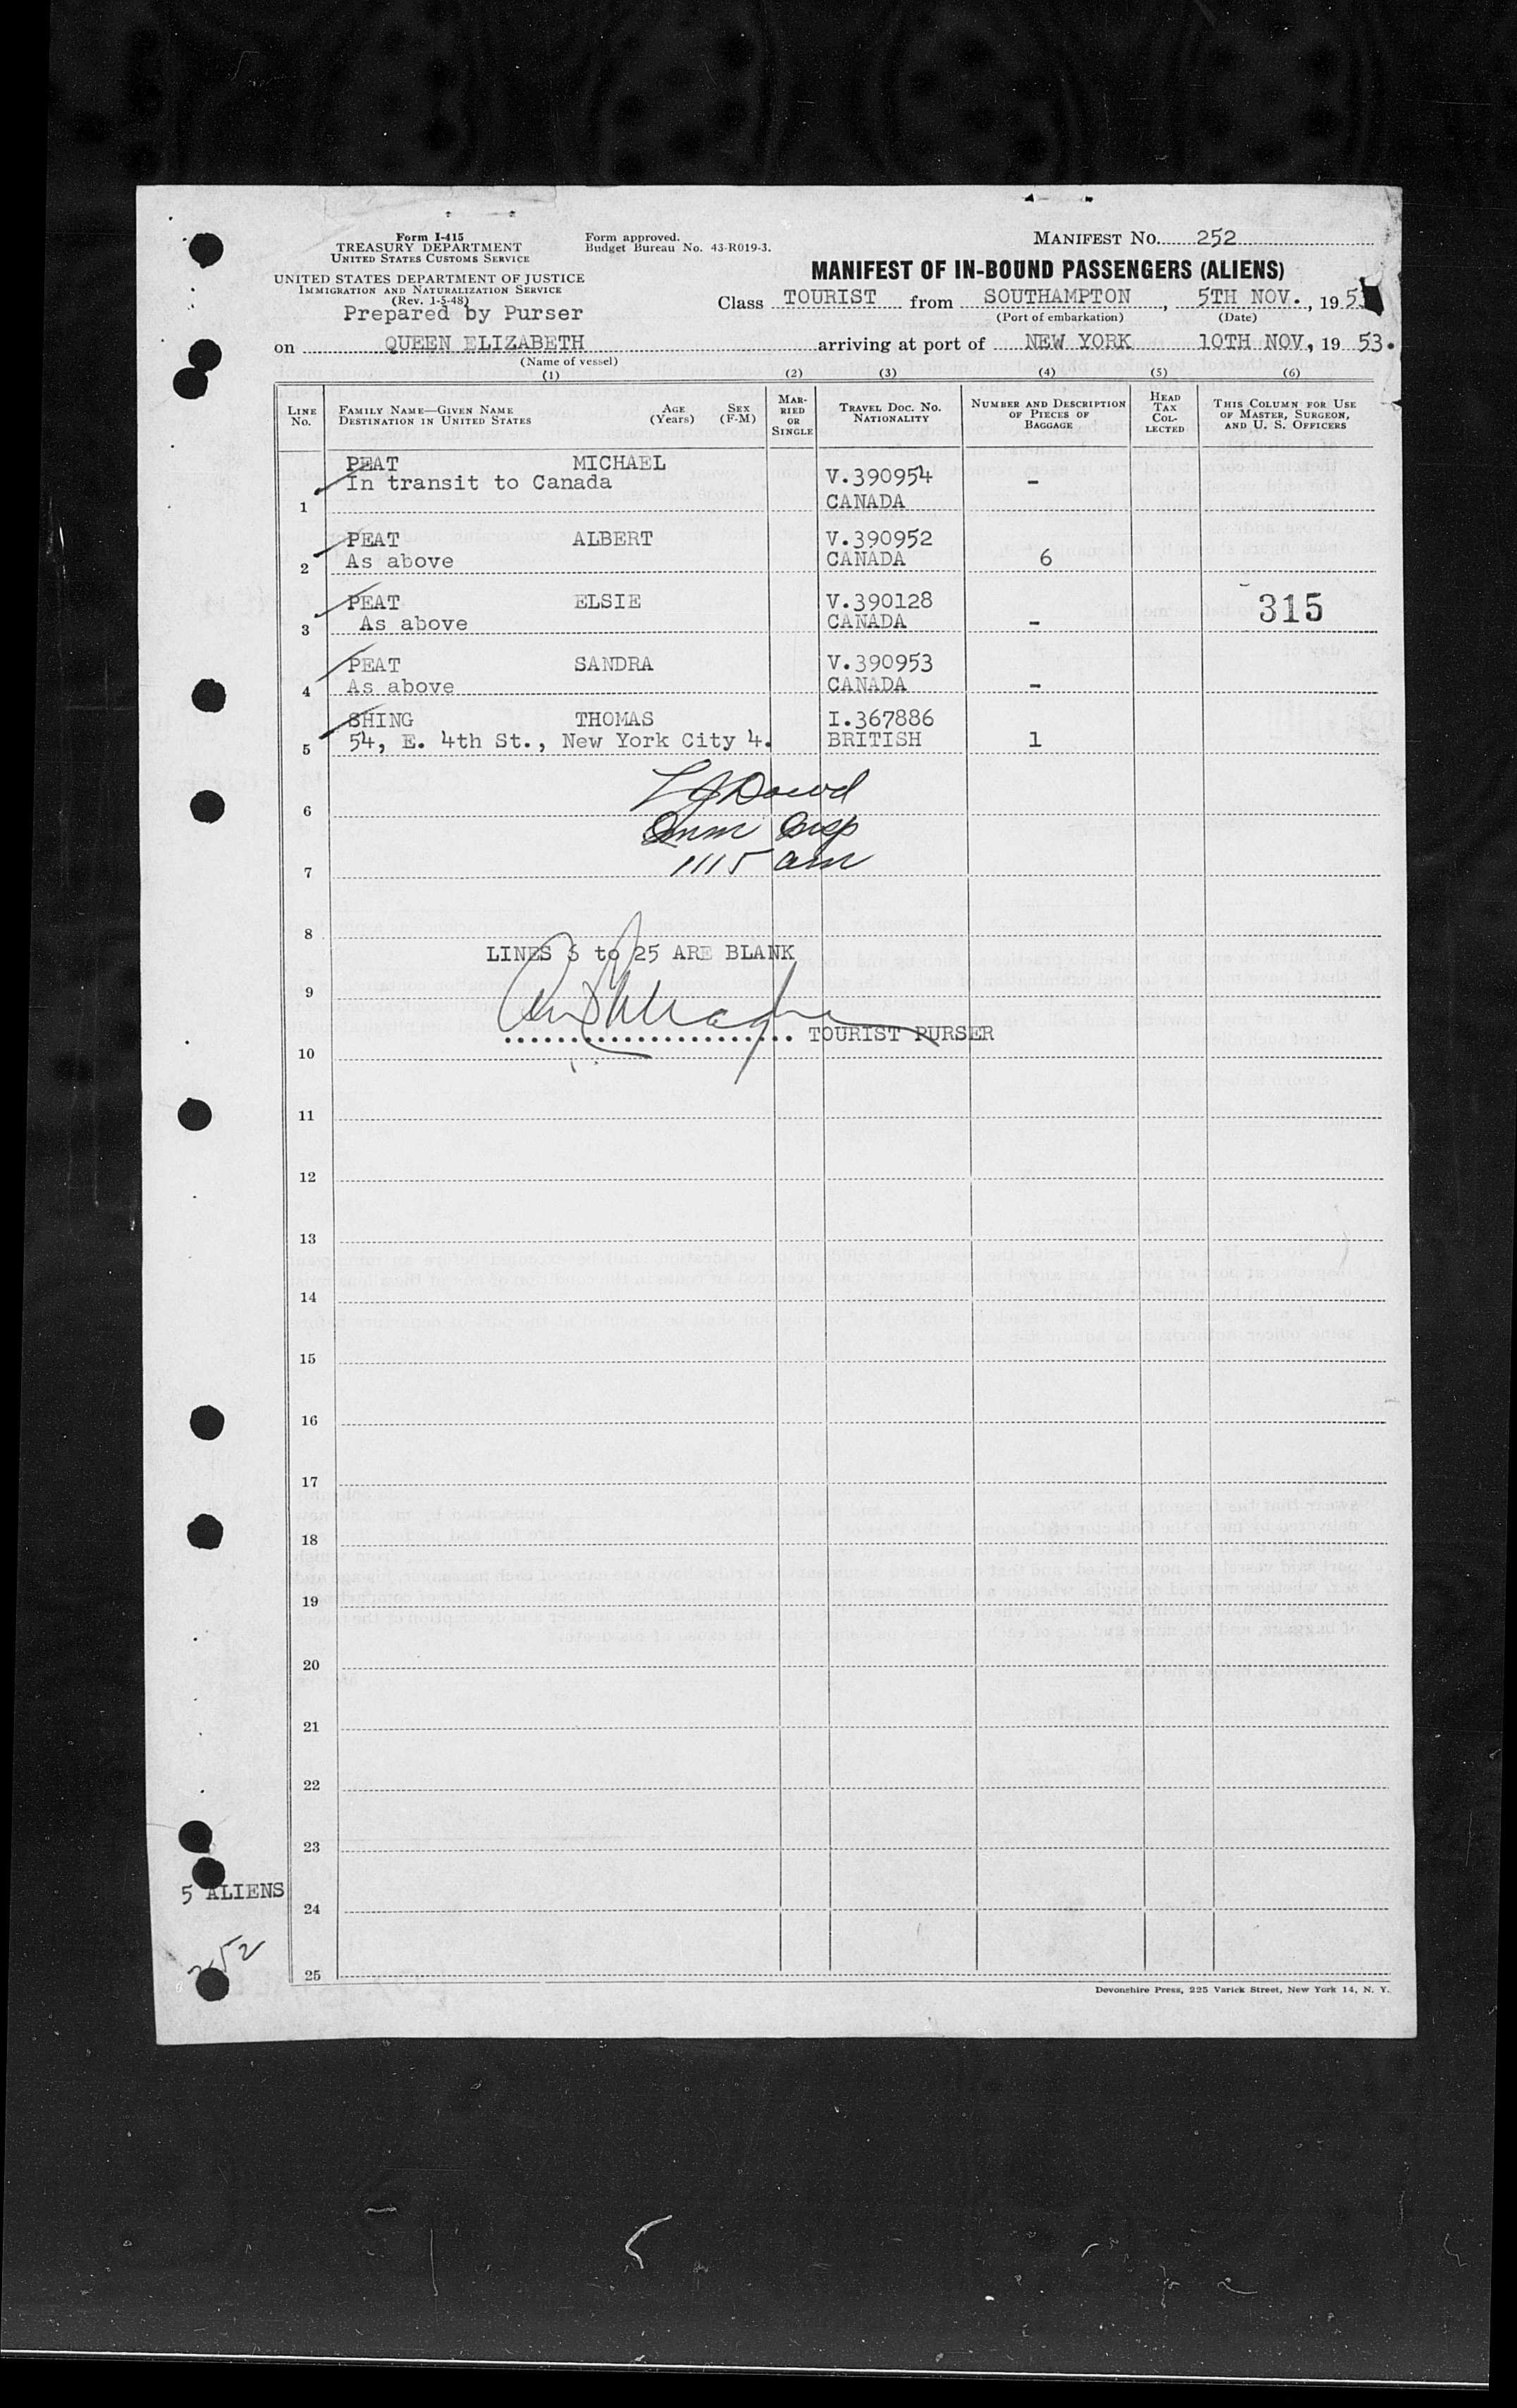 Form I-415
TREASURY DEPARTMENT
UNITED STATES CUSTOMS SERVICE
UNITED STATES DEPARTMENT OF JUSTICE
IMMIGRATION AND NATURALIZATION SERVICE
(Rev. 1-5-48)
Prepared by Purser
Form approved.
Budget Bureau No. 43-R019-3.
MANIFEST NO. 252
MANIFEST OF IN-BOUND PASSENGERS (ALIENS)
Class TOURIST from SOUTHAMPTON, 5TH NOV., 195
(Port of embarkation) (Date)
on QUEEN ELIZABETH arriving at port of NEW YORK 10TH NOV, 19 53.
(Name of vessel)
(1) (2) (3) (4) (5) (6)
LINE NO. FAMILY NAME—GIVEN NAME DESTINATION IN UNITED STATES AGE (Years) SEX (F-M) MARRIED OR SINGLE TRAVEL DOC. NO. NATIONALITY NUMBER AND DESCRIPTION OF PIECES OF BAGGAGE HEAD TAX COLLECTED THIS COLUMN FOR USE OF MASTER, SURGEON, AND U. S. OFFICERS
PEAT MICHAEL V.390954 -
1 In transit to Canada CANADA
PEAT ALBERT V.390952
2 As above CANADA 6
PEAT ELSIE V.390128 315
3 As above CANADA -
PEAT SANDRA V.390953
4 As above CANADA -
SHING THOMAS I.367886
5 54, E. 4th St., New York City 4. BRITISH 1
6
Imm Insp
7 1115 am
8
LINES 6 to 25 ARE BLANK
9
.................... TOURIST PURSER
10
11
12
13
14
15
16
17
18
19
20
21
22
23
5 ALIENS
24
252
25
Devonshire Press, 225 Varick Street, New York 14, N. Y.